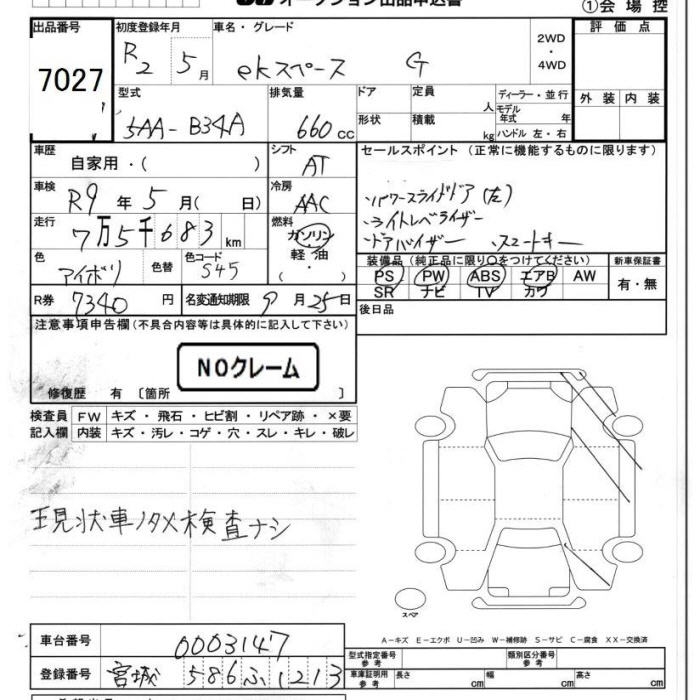 オークション出品申込書
①会場控
出品番号 初度登録年月 車名・グレード 評価点
7027 R2 5月 ekスペース G 2WD・4WD
型式 排気量 ドア 定員 人 ディーラー・並行 外装 内装
5AA-B34A 660cc 形状 積載 kg モデル年式 年
ハンドル 左・右
車歴 シフト セールスポイント (正常に機能するものに限ります)
自家用・( ) AT
車検 冷房 ・パワースライドドア(左)
R9年5月( 日) AAC ・ライトレベライザー
走行 燃料 ・ドアバイザー ・スマートキー
7万5千683km ガソリン
軽油
・( )
色 色替 色コード 装備品 (純正品に限り○をつけてください) 新車保証書
アイボリ S45 PS PW ABS エアB AW 有・無
SR ナビ TV カワ
R券 7340円 名変通知期限 9月25日 後日品
注意事項申告欄(不具合内容等は具体的に記入して下さい)
NOクレーム
修復歴 有〔箇所 〕
検査員 FW キズ・飛石・ヒビ割・リペア跡・×要
記入欄 内装 キズ・汚レ・コゲ・穴・スレ・キレ・破レ
現状車ノタメ検査ナシ
スペア
A-キズ E-エクボ U-凹み W-補修跡 S-サビ C-腐食 XX-交換済
車台番号 0003147 型式指定番号 参考 類別区分番号 参考
登録番号 宮城 586 ふ 1213 車庫証明用 参考 長さ cm 幅 cm 高さ cm